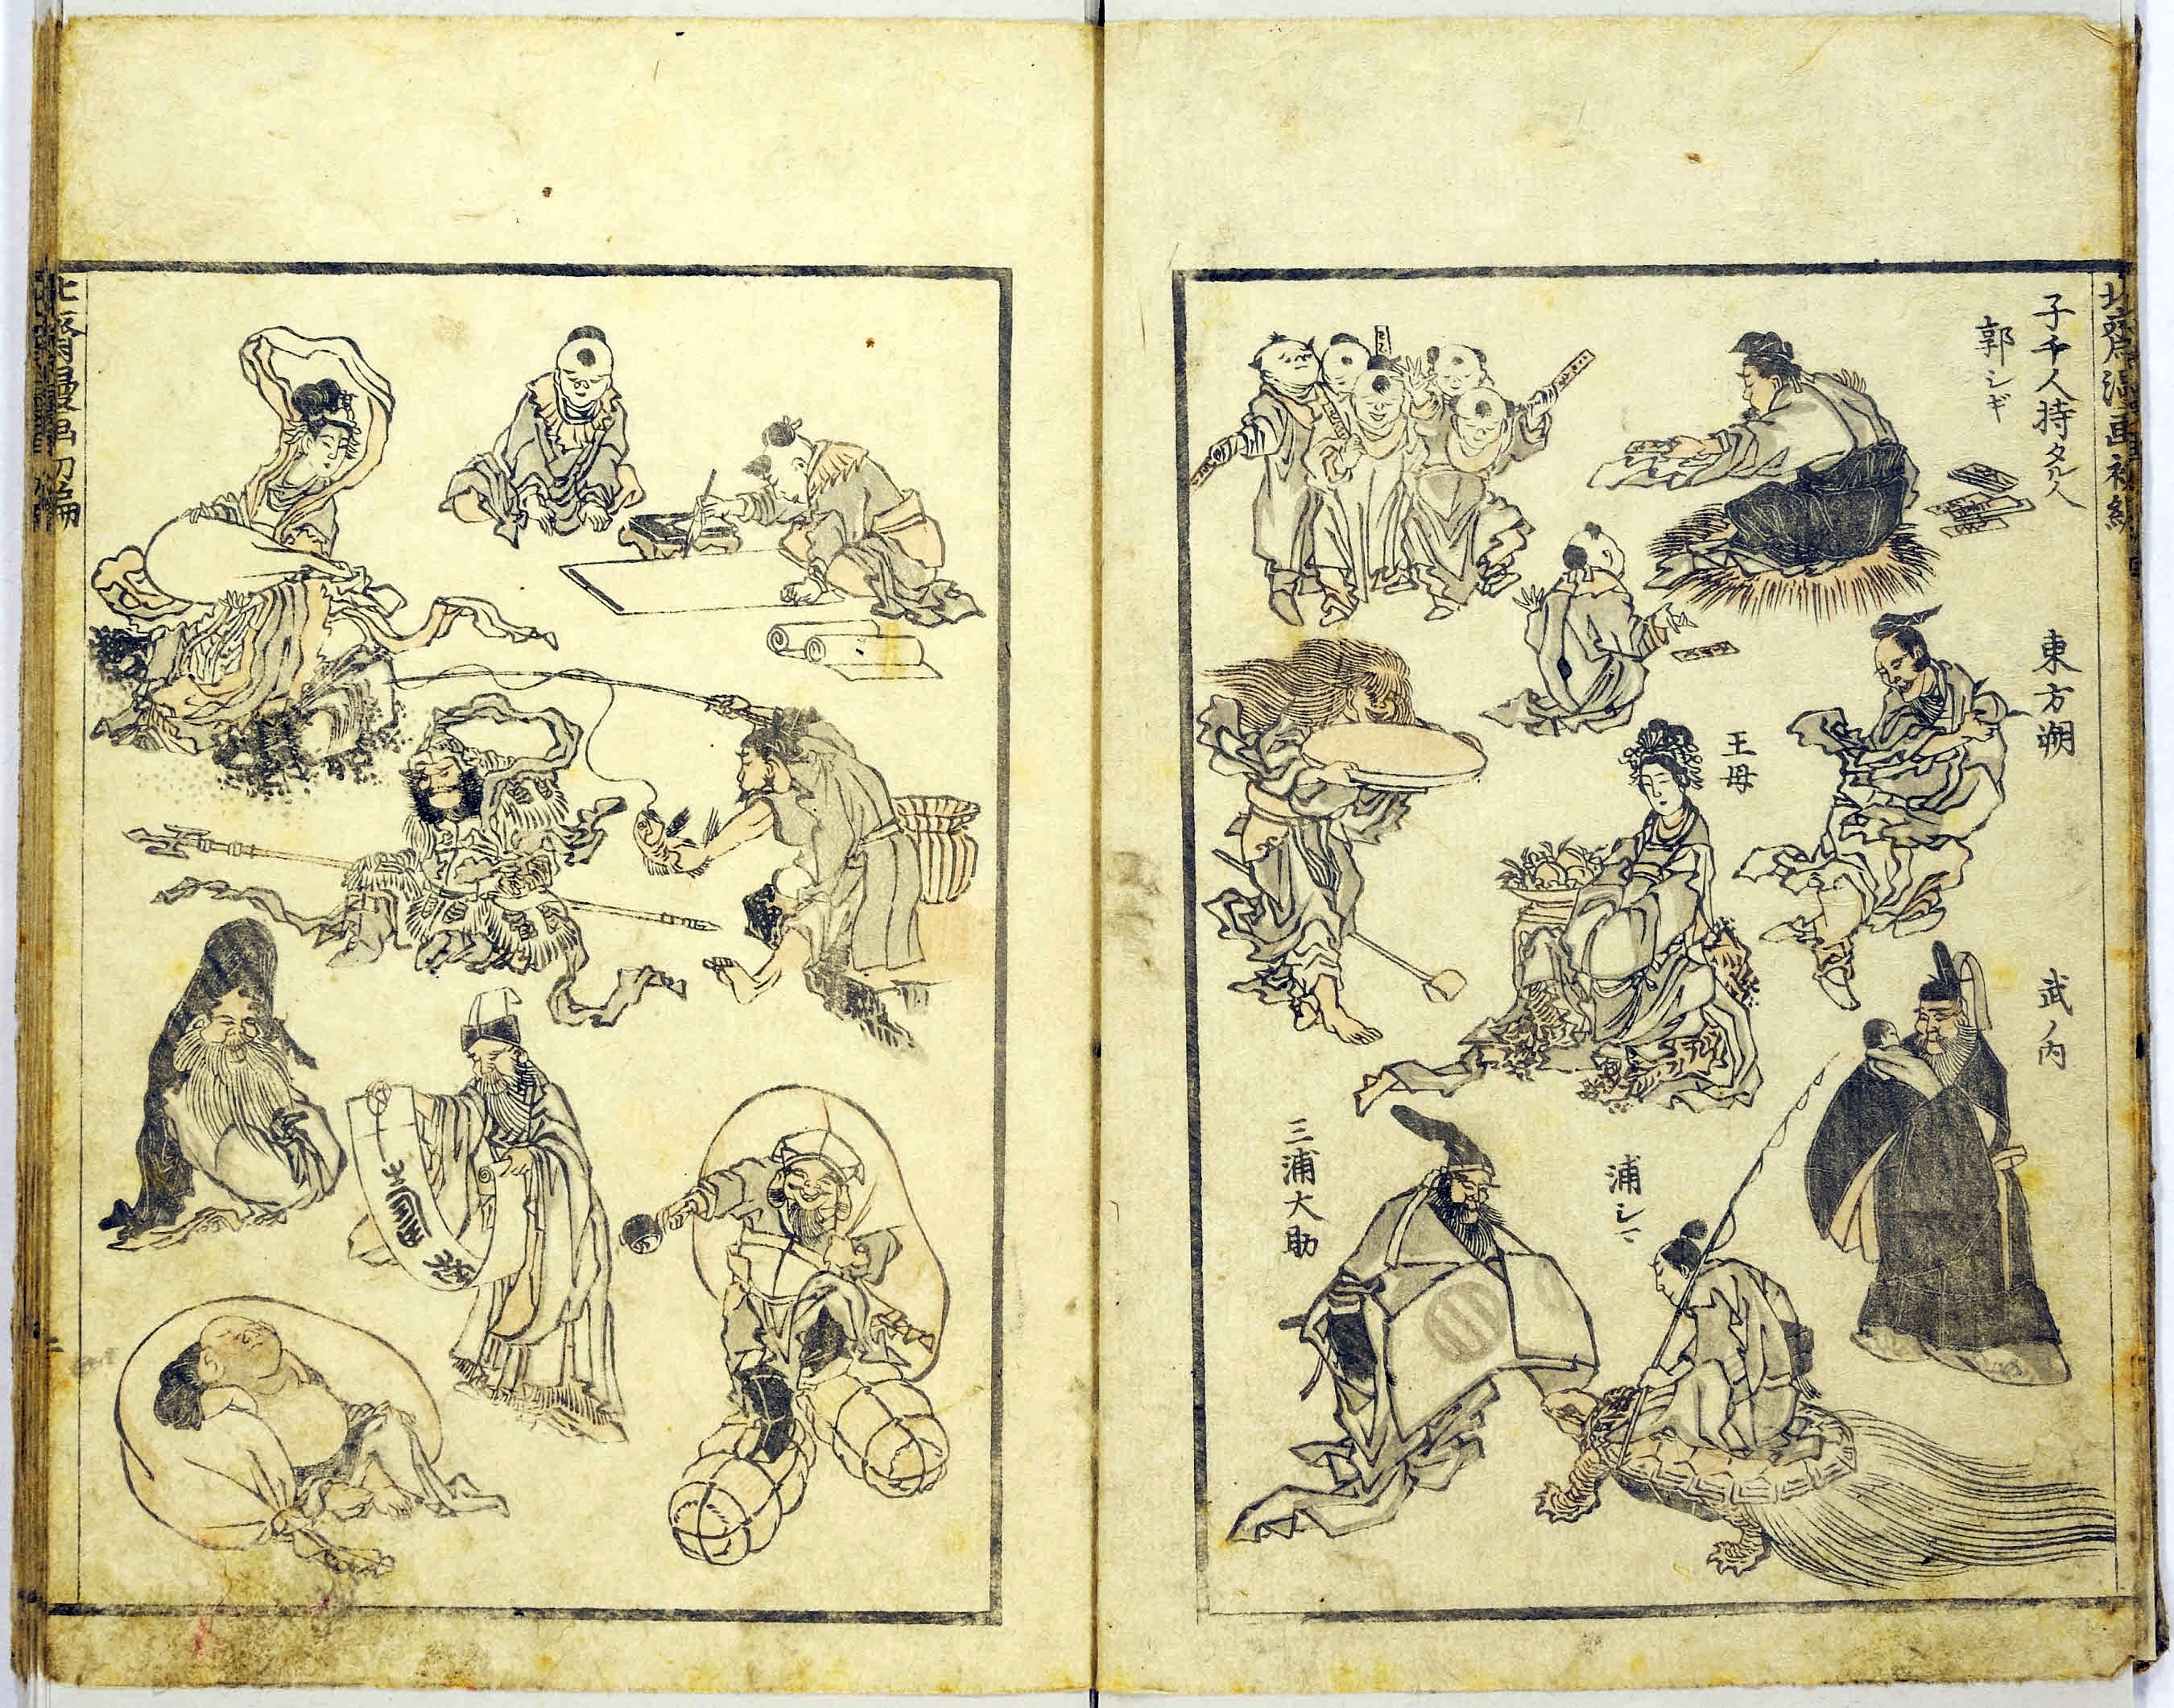 北斎漫画初編
子千人持タル人
郭シギ
東方朔
王母
武ノ内
浦シマ
三浦大助
北斎漫画初編